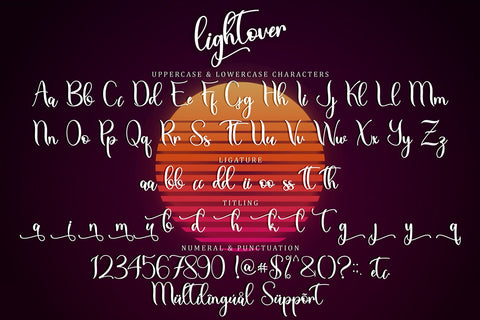 lightover
UPPERCASE & LOWERCASE CHARACTERS
Aa Bb Cc Dd Ee Ff Gg Hh Ii Jj Kk Ll Mm
Nn Oo Pp Qq Rr Ss Tt Uu Vv Ww Xx Yy Zz
LIGATURE
aa bb cc dd ii oo ss tt th
TITLING
a i n m u b d h k t g j y q
NUMERAL & PUNCTUATION
1234567890 !@#$%^&()?:: etc.
Multilinguål Sùppõrt